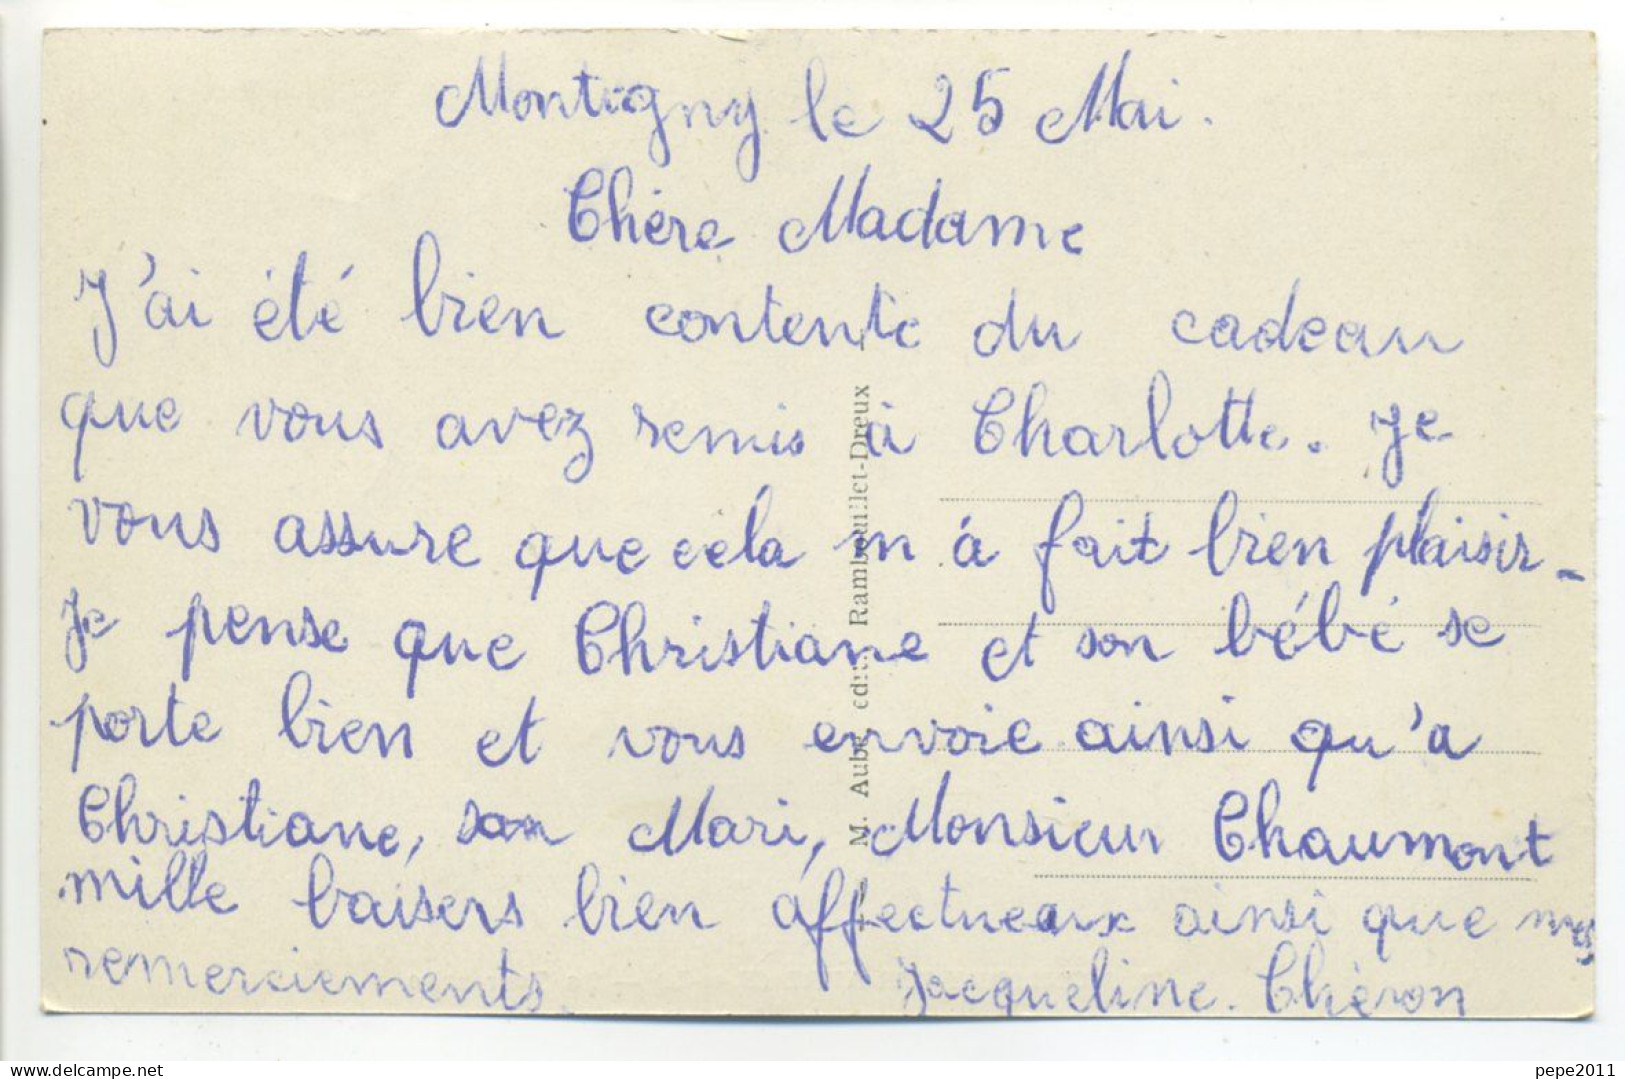 Montigny le 25 Mai.
Chère Madame
J'ai été bien contente du cadeau
que vous avez remis à Charlotte. Je
vous assure que cela m'à fait bien plaisir -
Je pense que Christiane et son bébé se
porte bien et vous envoie ainsi qu'a
Christiane, son Mari, Monsieur Chaumont
mille baisers bien affectueaux ainsi que mes
remerciements.
Jacqueline. Chéron
M. Aubé, édit. Rambouillet-Dreux
delcampe.net
pepe2011